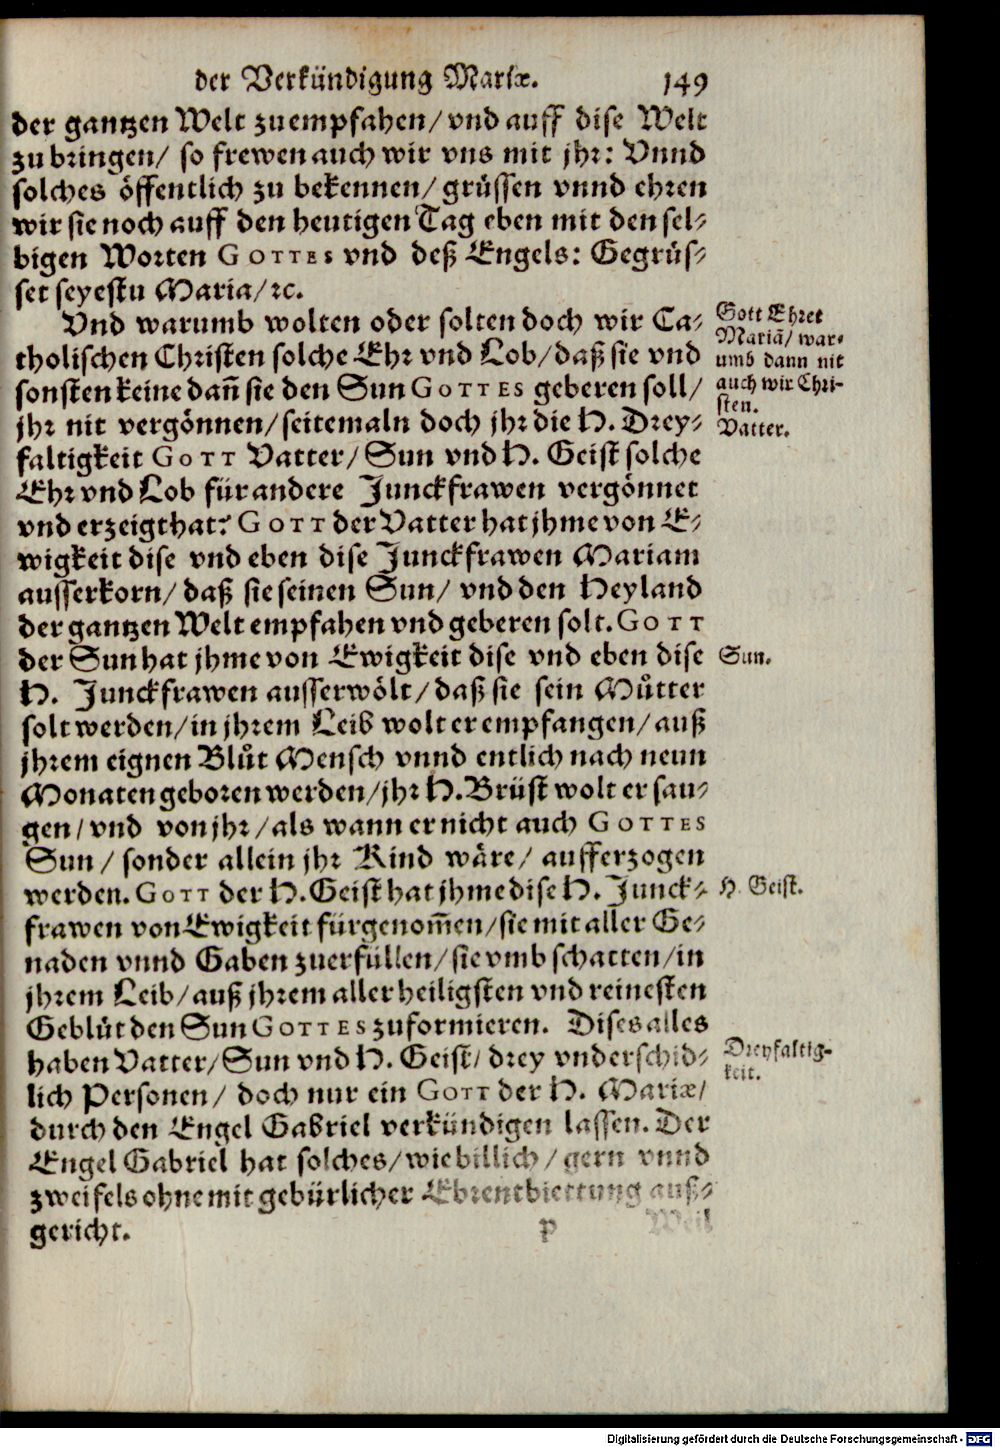 der Verkündigung Mariæ. 149
der gantzen Welt zuempfahen/ vnd auff dise Welt
zu bringen/ so frewen auch wir vns mit jhr: Vnnd
solches öffentlich zu bekennen/ grüssen vnnd ehren
wir sie noch auff den heutigen Tag eben mit den sel-
bigen Worten GOTTES vnd deß Engels: Gegrüs-
set seyestu Maria/ ꝛc.
Vnd warumb wolten oder solten doch wir Ca-
tholischen Christen solche Ehr vnd Lob/ daß sie vnd
sonsten keine dañ sie den Sun GOTTES geberen soll/
jhr nit vergönnen/ seitemaln doch jhr die H. Drey-
faltigkeit GOTT Vatter/ Sun vnd H. Geist solche
Ehr vnd Lob für andere Junckfrawen vergönnet
vnd erzeigt hat? GOTT der Vatter hat jhme von E-
wigkeit dise vnd eben dise Junckfrawen Mariam
ausserkorn/ daß sie seinen Sun/ vnd den Heyland
der gantzen Welt empfahen vnd geberen solt. GOTT
der Sun hat jhme von Ewigkeit dise vnd eben dise
H. Junckfrawen ausserwölt/ daß sie sein Můtter
solt werden/ in jhrem Leib wolt er empfangen/ auß
jhrem eignen Blůt Mensch vnnd entlich nach neun
Monaten geboren werden/ jhr H. Brüst wolt er sau-
gen/ vnd von jhr/ als wann er nicht auch GOTTES
Sun/ sonder allein jhr Kind wäre/ aufferzogen
werden. GOTT der H. Geist hat jhme dise H. Junck-
frawen von Ewigkeit fürgenom̃en/ sie mit aller Ge-
naden vnnd Gaben zuerfüllen/ sie vmbschatten/ in
jhrem Leib/ auß jhrem aller heiligsten vnd reinesten
Geblůt den Sun GOTTES zuformieren. Dises alles
haben Vatter/ Sun vnd H. Geist/ drey vnderschid-
lich Personen/ doch nur ein GOTT der H. Mariæ/
durch den Engel Gabriel verkündigen lassen. Der
Engel Gabriel hat solches/ wie billich/ gern vnnd
zweifels ohne mit gebürlicher Ehrentbiettung auß-
gericht.
P Weil
Gott Ehret
Mariã/ war-
umb dann nit
auch wir Chri-
sten.
Vatter.
Sun.
H. Geist.
Dreyfaltig-
keit.
Digitalisierung gefördert durch die Deutsche Forschungsgemeinschaft - DFG